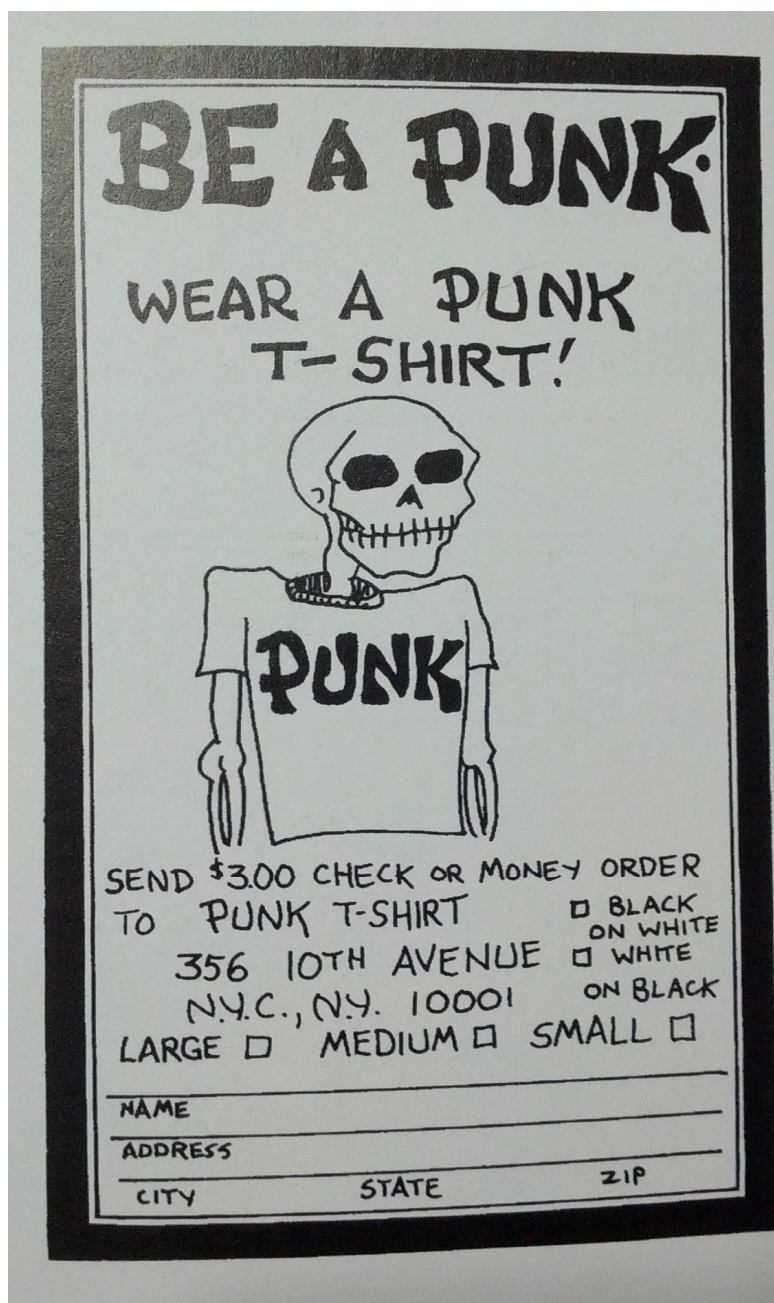 BE A PUNK.
WEAR A PUNK
T-SHIRT!
PUNK
SEND $3.00 CHECK OR MONEY ORDER
TO PUNK T-SHIRT
356 10TH AVENUE
N.Y.C., N.Y. 10001
☐ BLACK
ON WHITE
☐ WHITE
ON BLACK
LARGE ☐ MEDIUM ☐ SMALL ☐
NAME
ADDRESS
CITY STATE ZIP